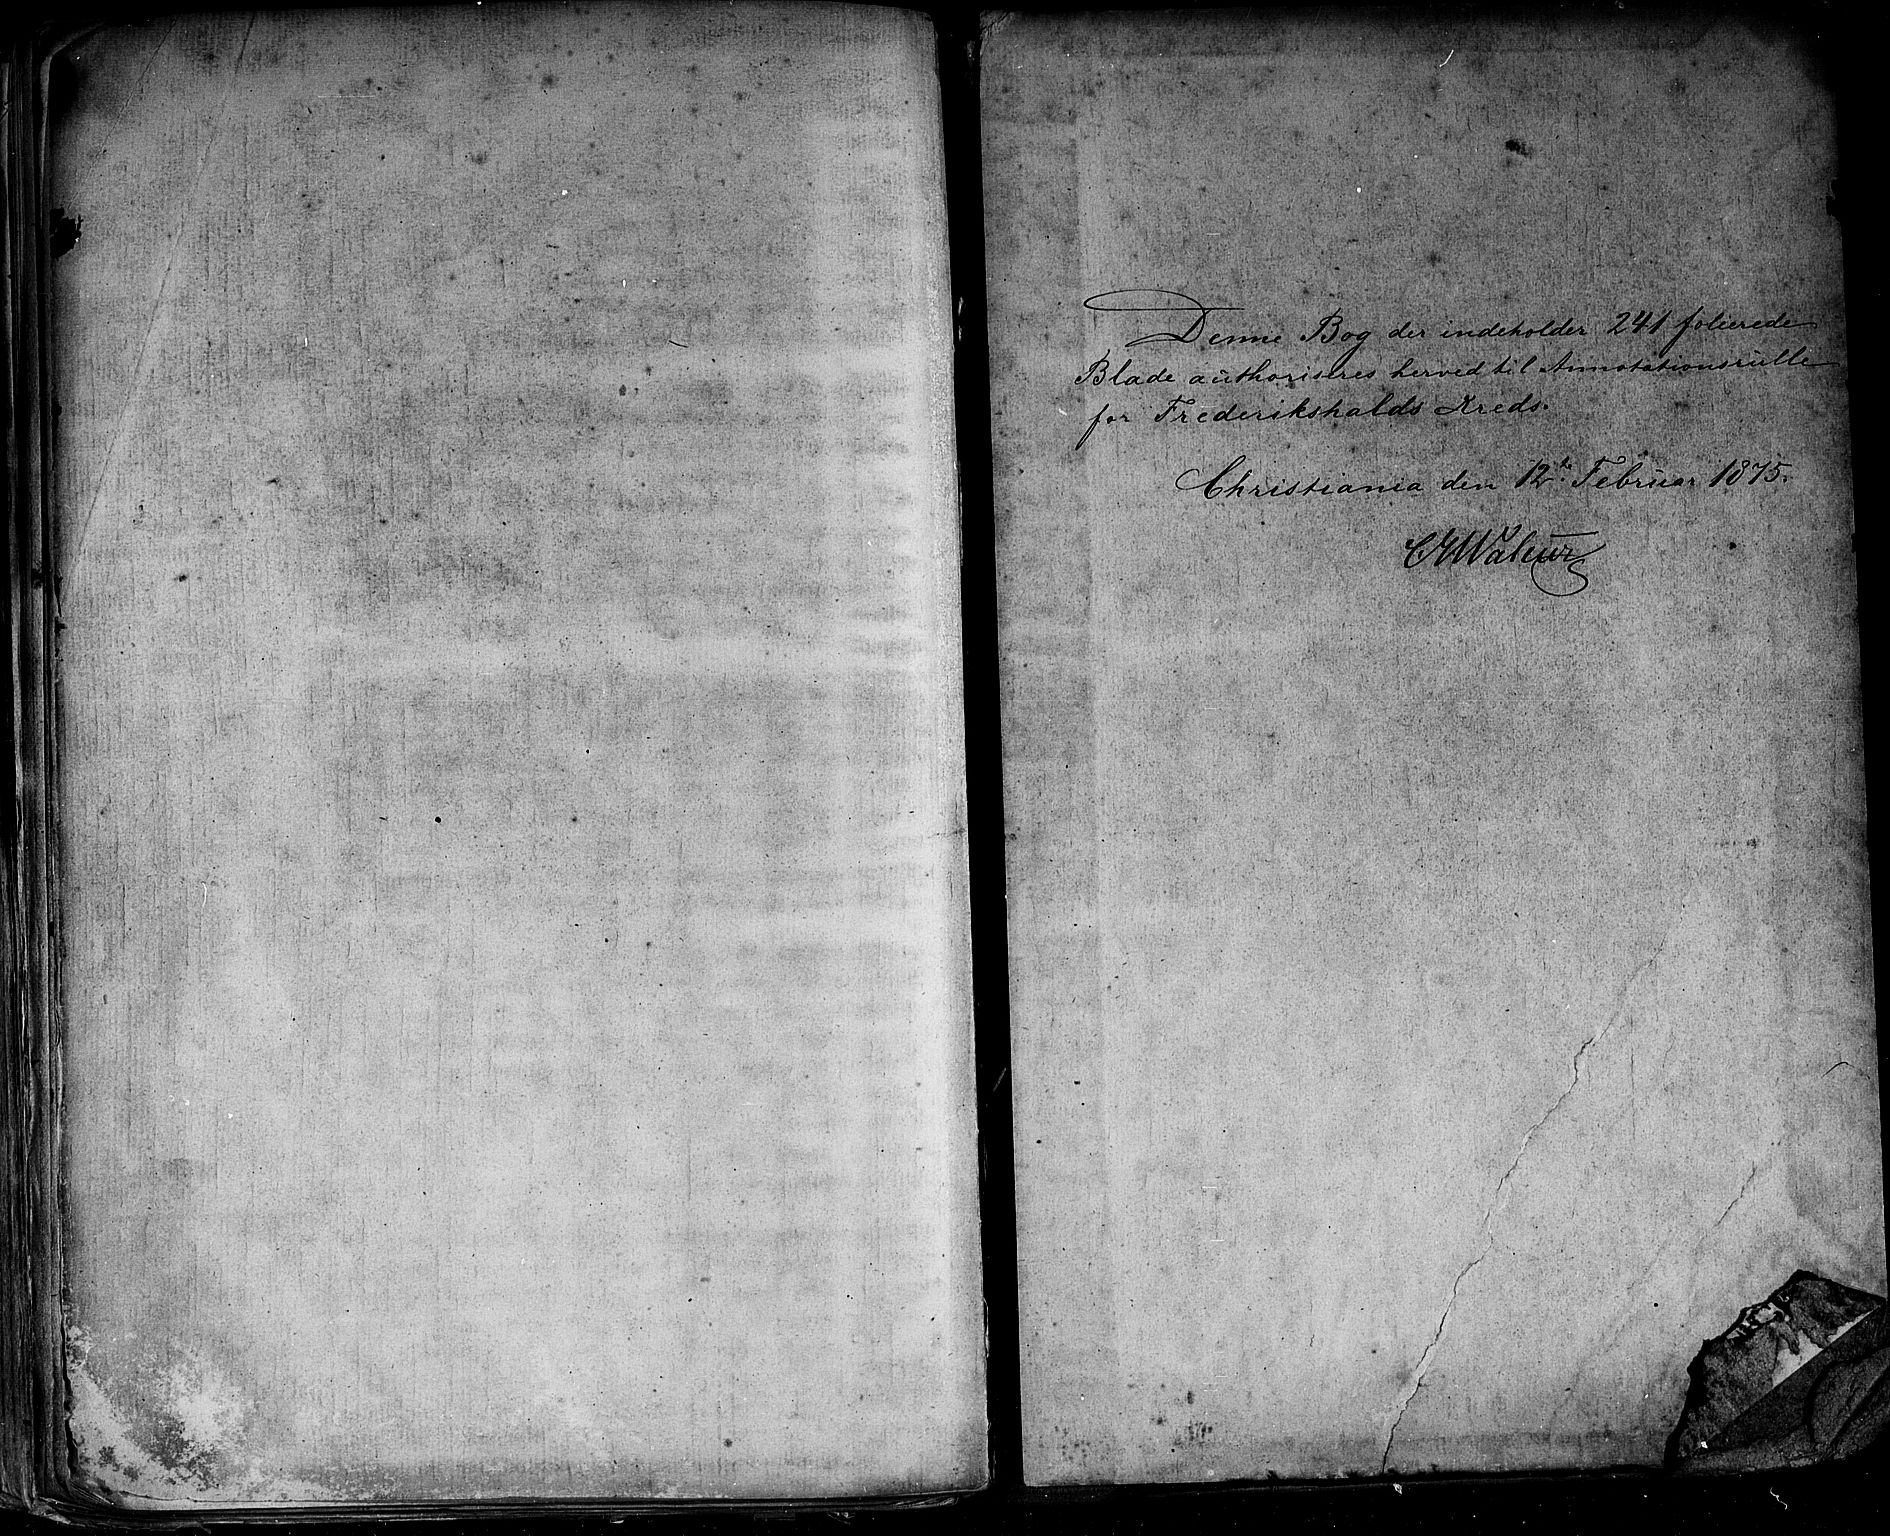 Denne Bog der indeholder 241 folierede
Blade authoriseres herved til Annotationsrulle
for Frederikshalds Kreds.
Christiania den 12te Februar 1875.